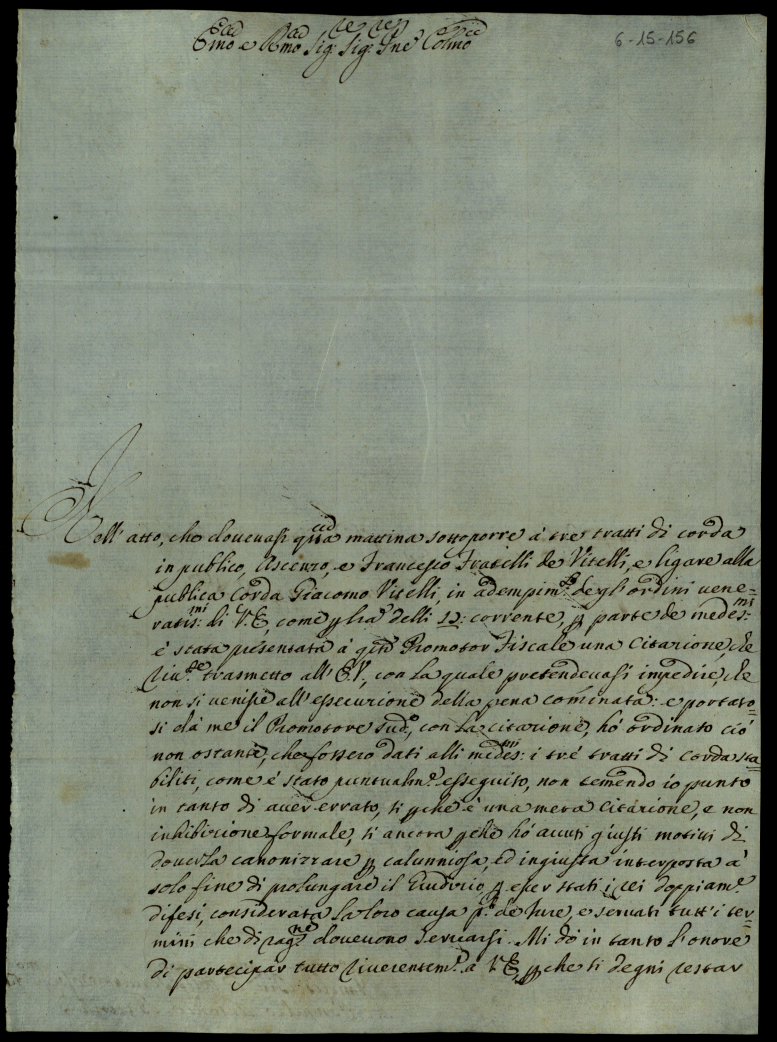 6-15-156
Emo e Rmo Sig.re Sig.re Pne Colmo
Nell' atto, che dovevasi qsta mattina sottoporre à tre tratti di corda
in publico, Ascenzo, e Francesco Fratelli de Vitelli, e ligare alla
publica Corda Giacomo Vitelli, in adempim.to degl' ordini vene=
ratis:mi di V.E., come p l'ra delli 12: corrente, p parte de medes:mi
è stata presentata à qsto Promotor Fiscale una Citazione, che
riv.te trasmetto all' E.V., con la quale pretendevasi impedire, che
non si venisse all' essecuzione della pena cominata: e portato=
si dà me il Promotore sud.o, con la citazione, hò ordinato ciò
non ostante, che fossero dati alli medes:mi i trè tratti di corda sta=
biliti, come è stato puntualm.te esseguito, non temendo io punto
in tanto di aver errato, sì pche è una mera Citazione, e non
inhibizione formale, sì ancora pche hò avuti giusti motivi di
doverla canonizzare p calunniosa, ed ingiusta interposta à
solo fine di prolungare il Giudizio, p esser stati i rei doppiam.te
difesi, considerata la loro causa p.a de Jure, e servati tutt' i ter=
mini che di rag.ne dovevono servarsi. Mi dò in tanto l'onore
di partecipar tutto riverentem.te à V.E., pche si degni restar